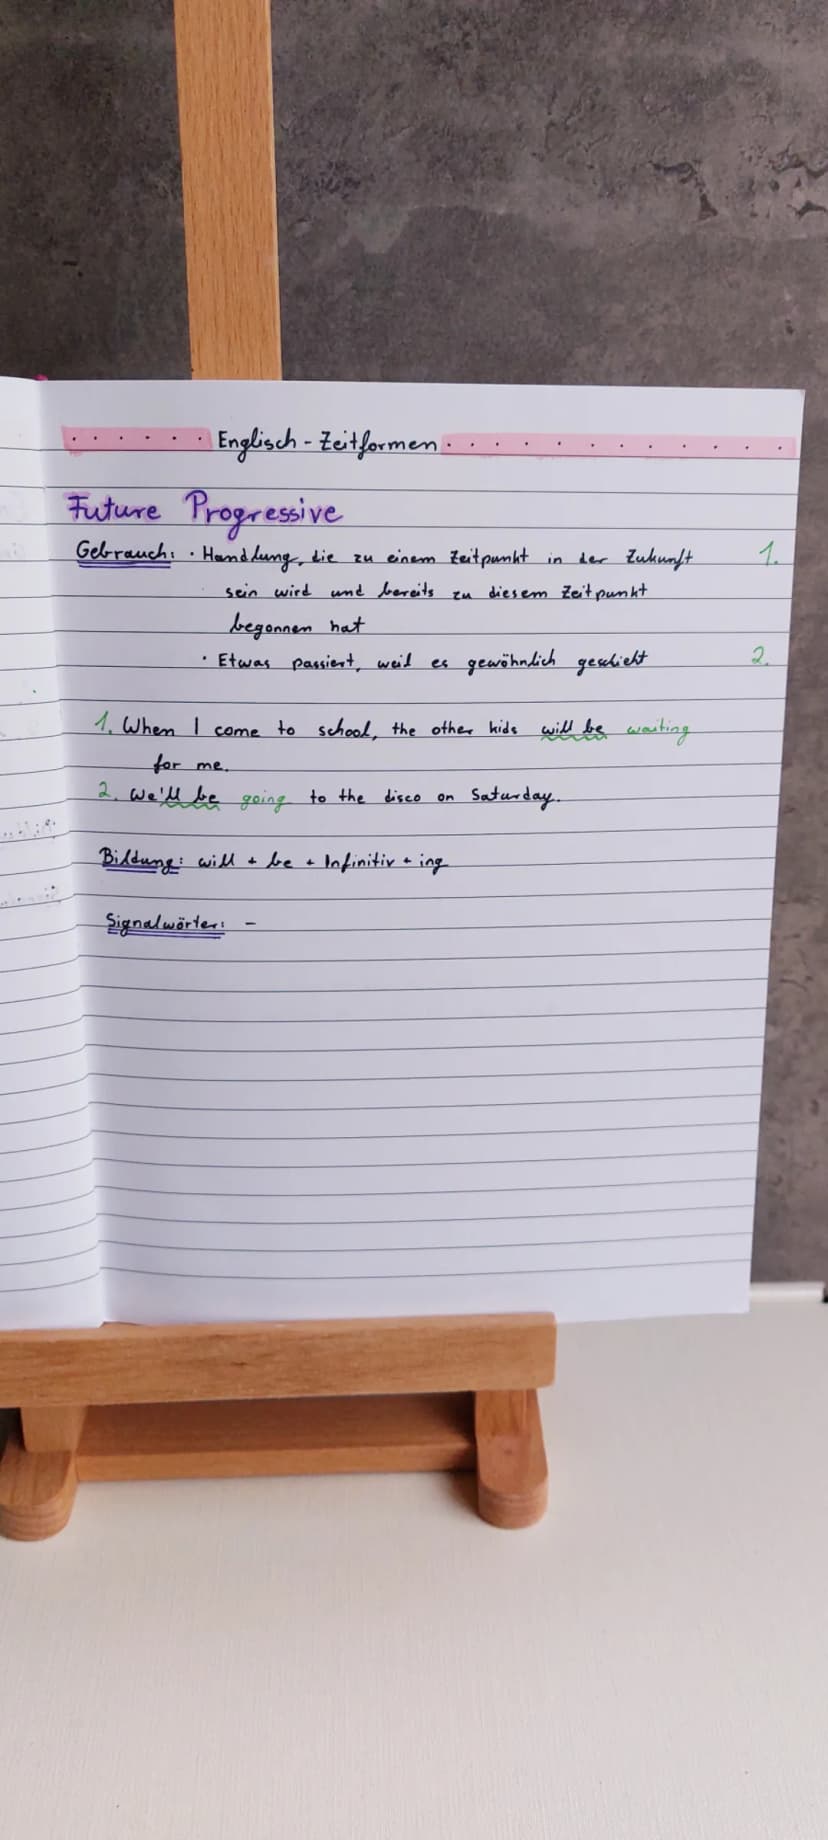 Englisch - Zeitformen
Future Progressive
Gebrauch: · Handlung, die zu einem Zeitpunkt in der Zukunft 1.
sein wird und bereits zu diesem Zeitpunkt
begonnen hat
· Etwas passiert, weil es gewöhnlich geschieht 2.
1. When I come to school, the other kids will be waiting
for me.
2. We'll be going to the disco on Saturday.
Bildung: will + be + Infinitiv + ing
Signalwörter: -